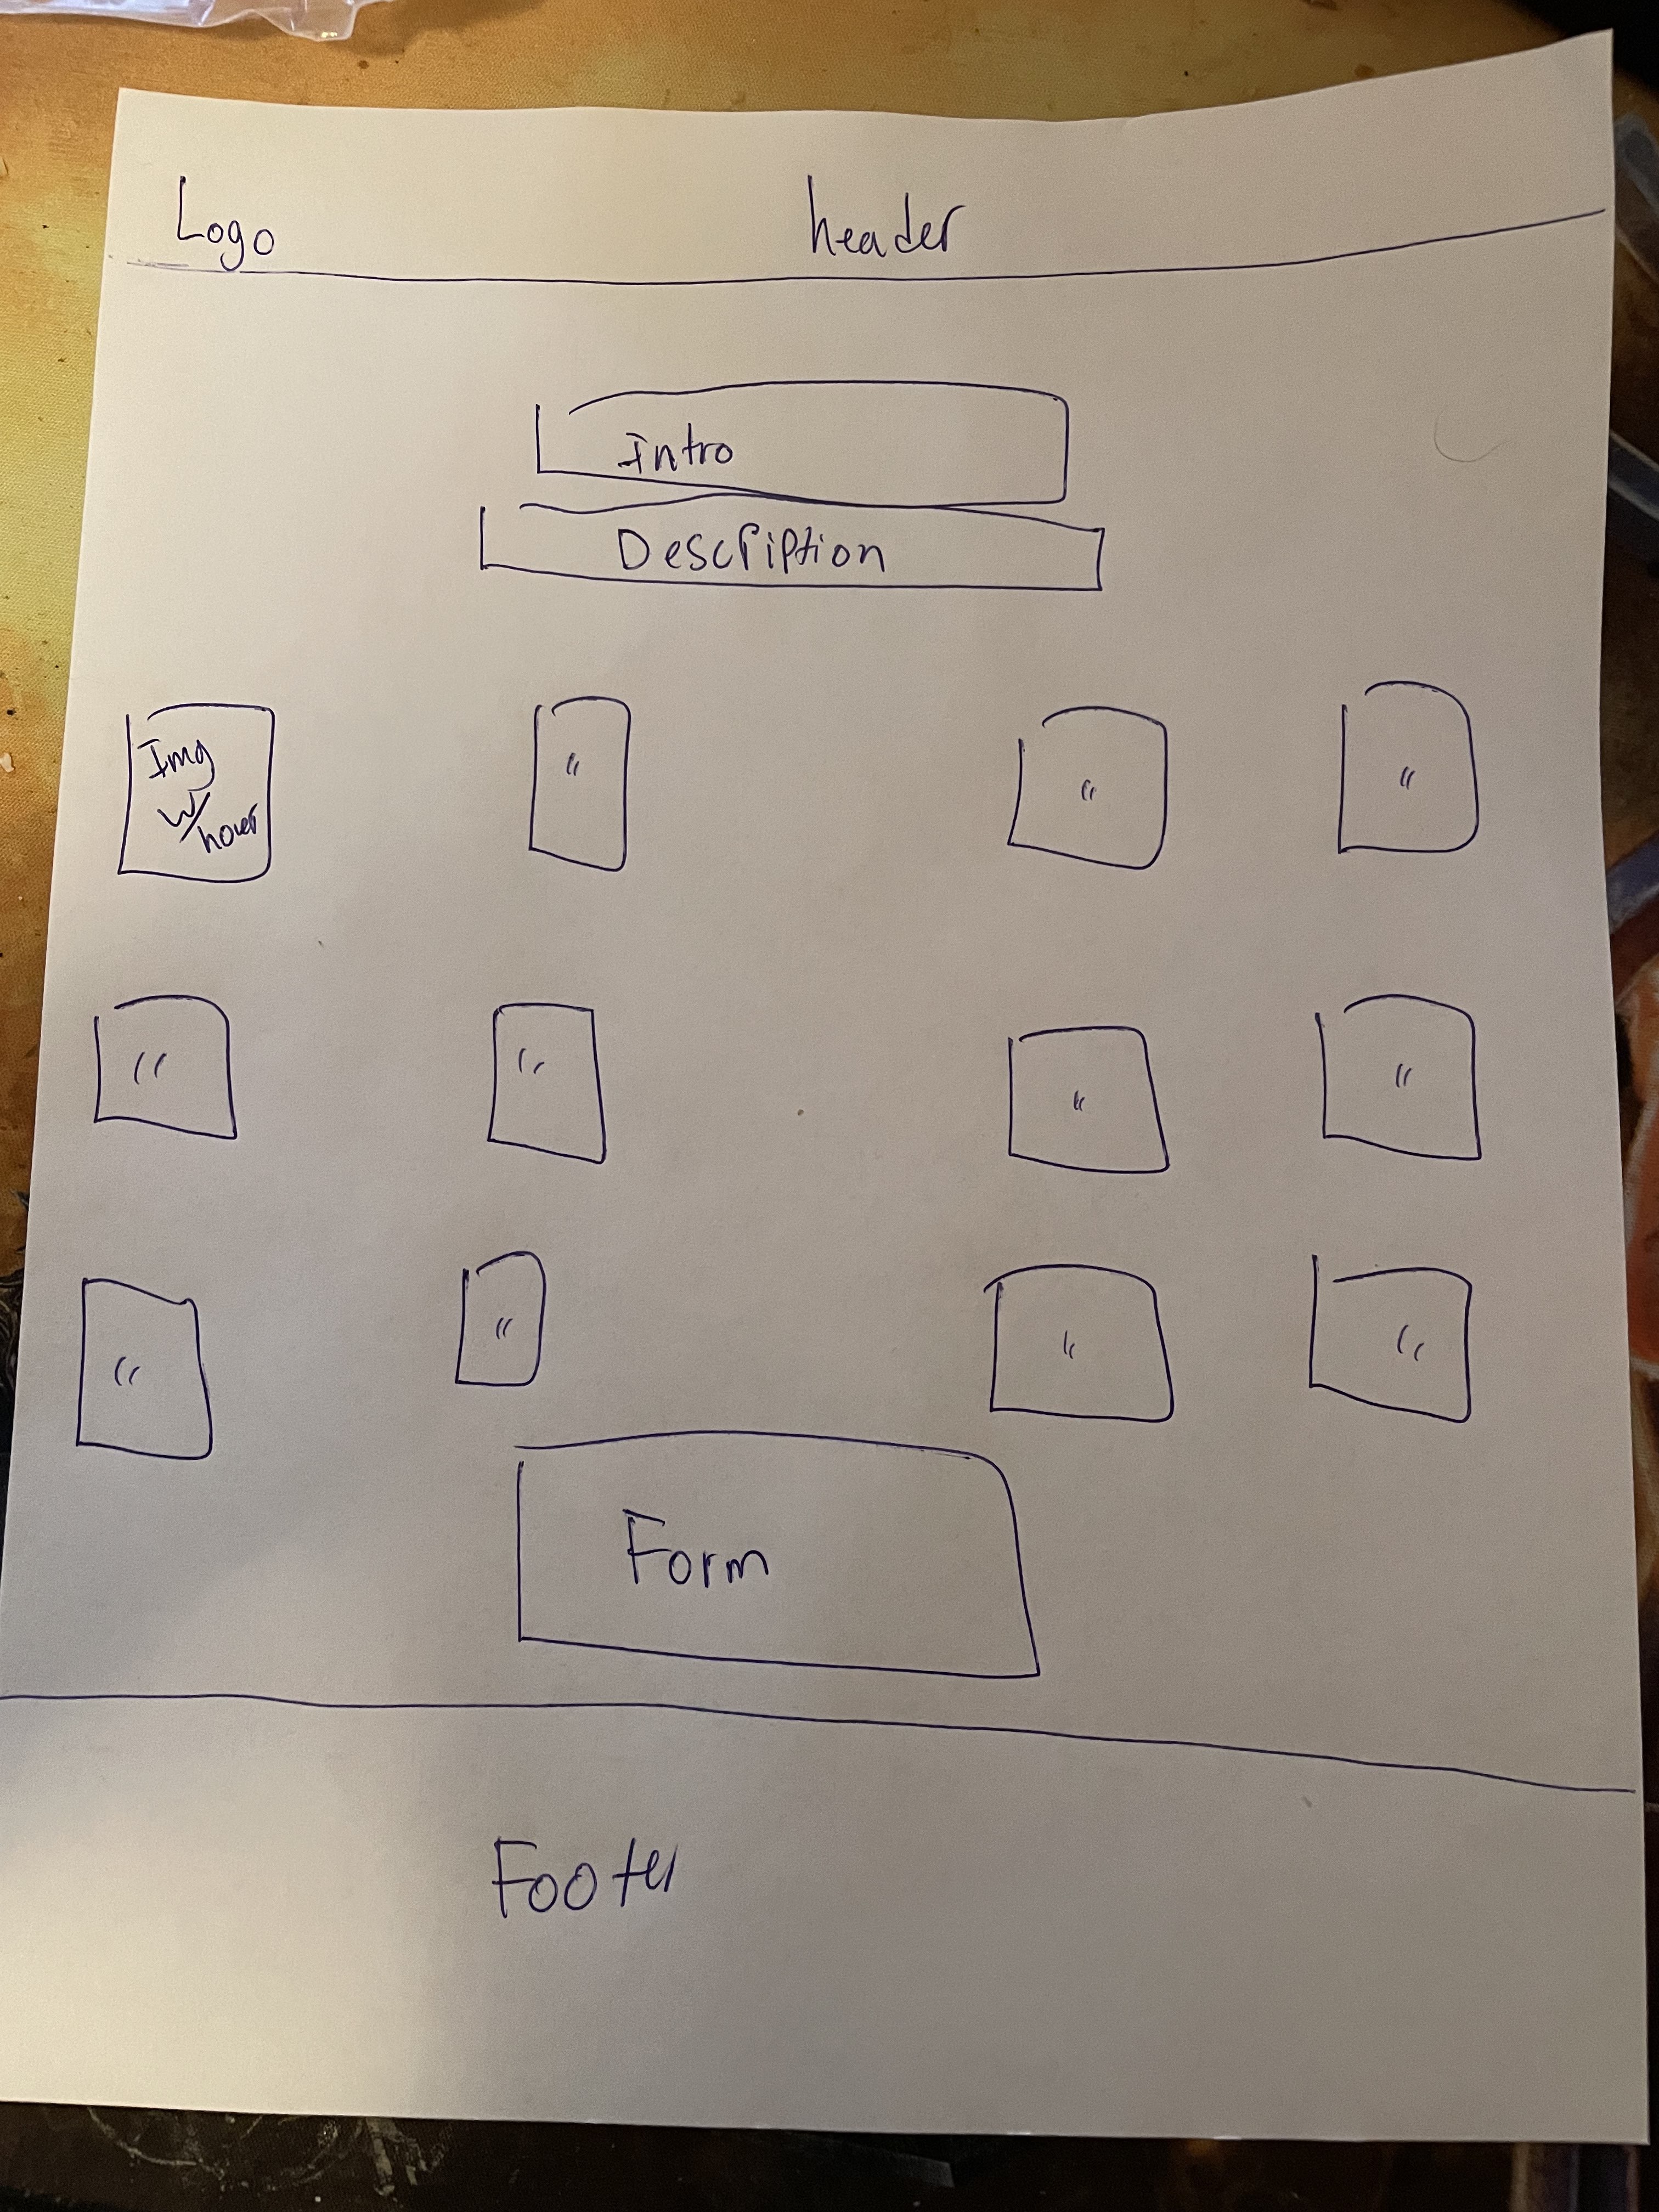 Logo header
Intro
Description
Img " " "
w/
hover
" " " "
" " " "
Form
Footer